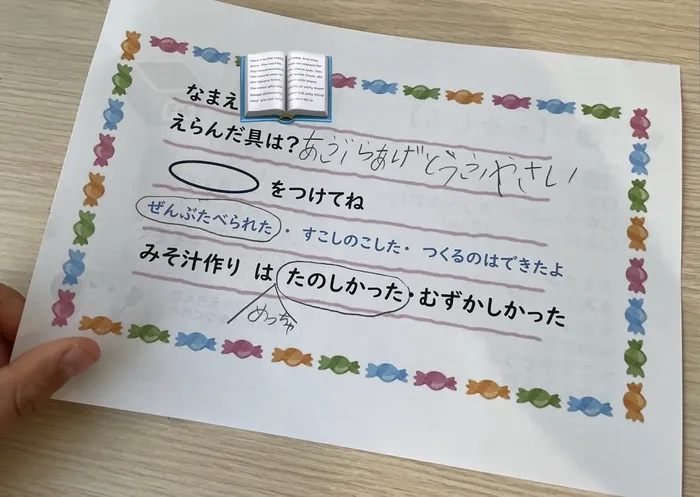 なまえ
えらんだ具は？あぶらあげとうふやさい
をつけてね
ぜんぶたべられた・すこしのこした・つくるのはできたよ
みそ汁作り は たのしかった・むずかしかった
めっちゃ